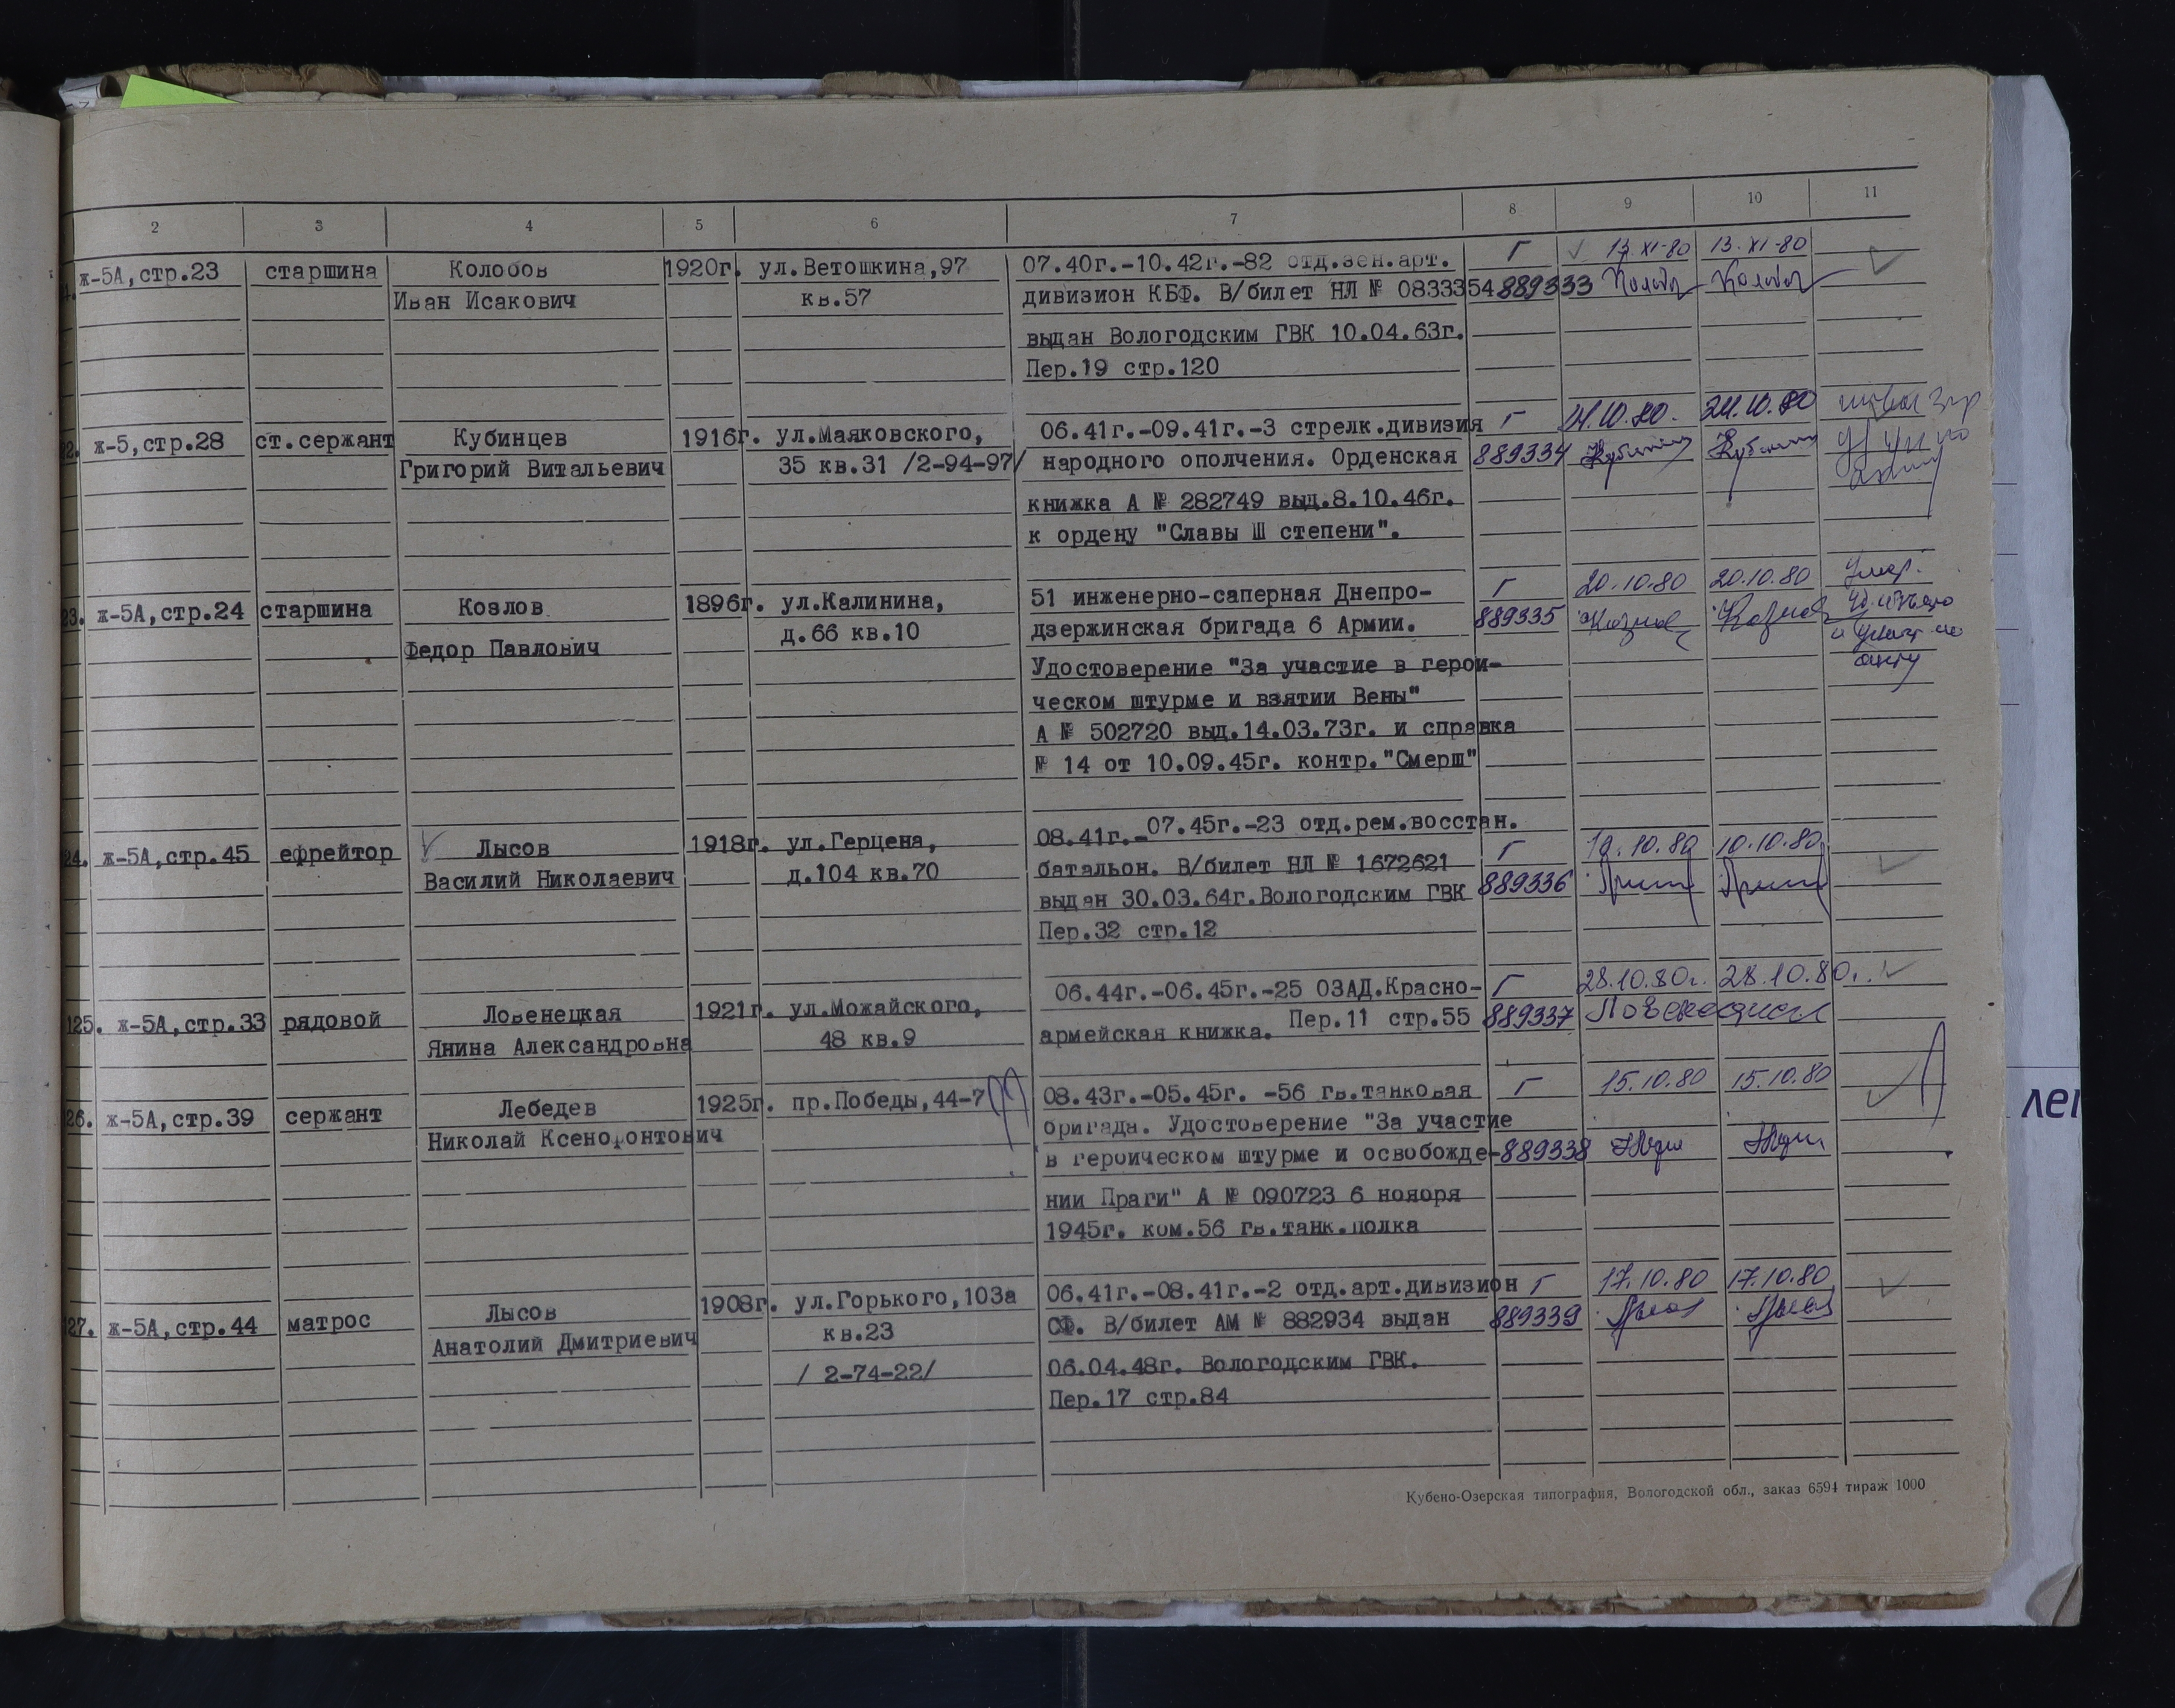 2 3 4 5 6 7 8 9 10 11
ж-5А,стр.23 старшина Колобов 1920г. ул.Ветошкина,97 07.40г.-10.42г.-82 отд.зен.арт. Г 13.XI-80 13.XI-80
Иван Исакович кв.57 дивизион КБФ. В/билет НЛ № 0833354 889333
выдан Вологодским ГВК 10.04.63г.
Пер.19 стр.120
22. ж-5,стр.28 ст.сержант Кубинцев 1916г. ул.Маяковского, 06.41г.-09.41г.-3 стрелк.дивизия Г 24.10.80. 24.10.80
Григорий Витальевич 35 кв.31 /2-94-97/ народного ополчения. Орденская 889334
книжка А № 282749 выд.8.10.46г.
к ордену "Славы Ш степени".
23. ж-5А,стр.24 старшина Козлов 1896г. ул.Калинина, 51 инженерно-саперная Днепро- Г 20.10.80 20.10.80 Умер.
Федор Павлович д.66 кв.10 дзержинская бригада 6 Армии. 889335 Козлов Козлов
Удостоверение "За участие в герои- акту
ческом штурме и взятии Вены"
А № 502720 выд.14.03.73г. и справка
№ 14 от 10.09.45г. контр."Смерш"
24. ж-5А,стр.45 ефрейтор Лысов 1918г. ул.Герцена, 08.41г.-07.45г.-23 отд.рем.восстан. Г 10.10.80 10.10.80
Василий Николаевич д.104 кв.70 батальон. В/билет НЛ № 1672621 889336
выдан 30.03.64г.Вологодским ГВК
Пер.32 стр.12
125. ж-5А,стр.33 рядовой Ловенецкая 1921г. ул.Можайского, 06.44г.-06.45г.-25 ОЗАД.Красно- Г 28.10.80г. 28.10.80г.
Янина Александровна 48 кв.9 армейская книжка. Пер.11 стр.55 889337 Ловенецкая
26. ж-5А,стр.39 сержант Лебедев 1925г. пр.Победы,44-7 08.43г.-05.45г. -56 гв.танковая Г 15.10.80 15.10.80
Николай Ксенофонтович бригада. Удостоверение "За участие
в героическом штурме и освобожде- 889338
нии Праги" А № 090723 6 ноября
1945г. ком.56 гв.танк.полка
27. ж-5А,стр.44 матрос Лысов 1908г. ул.Горького,103а 06.41г.-08.41г.-2 отд.арт.дивизион Г 17.10.80 17.10.80
Анатолий Дмитриевич кв.23 СФ. В/билет АМ № 882934 выдан 889339
/ 2-74-22/ 06.04.48г. Вологодским ГВК.
Пер.17 стр.84
Кубено-Озерская типография, Вологодской обл., заказ 6594 тираж 1000